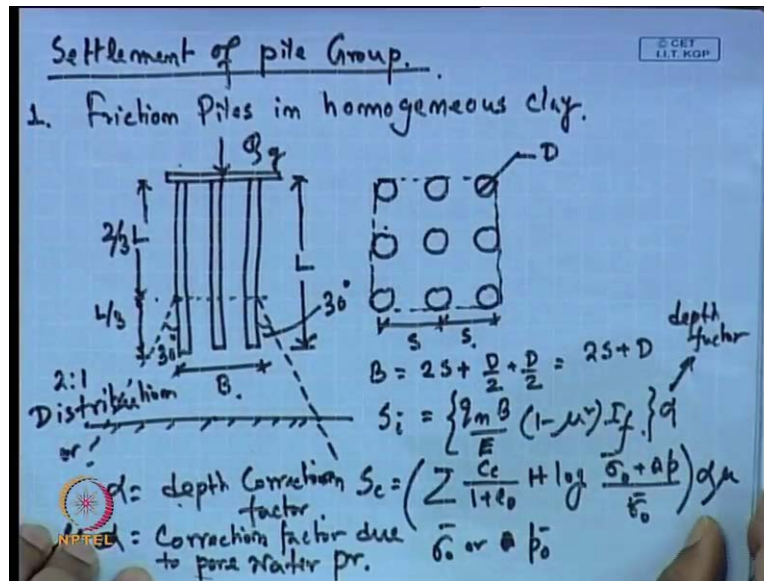 Settlement of pile Group.
© CET
I.I.T. KGP
1. Friction Piles in homogeneous clay.
Qg
D
2/3 L
L
L/3
30°
30°
B.
S
S.
depth factor
B = 2S + D/2 + D/2 = 2S + D
2:1
Distribution
or
Si = {qn B / E (1-μ²) If.} α
α = depth Correction factor.
Sc = (Σ Cc / 1+e0 H log σ̄0 + Δp / σ̄0) α μ
α = Correction factor due to pore water pr.
σ̄0 or p̄0
NPTEL